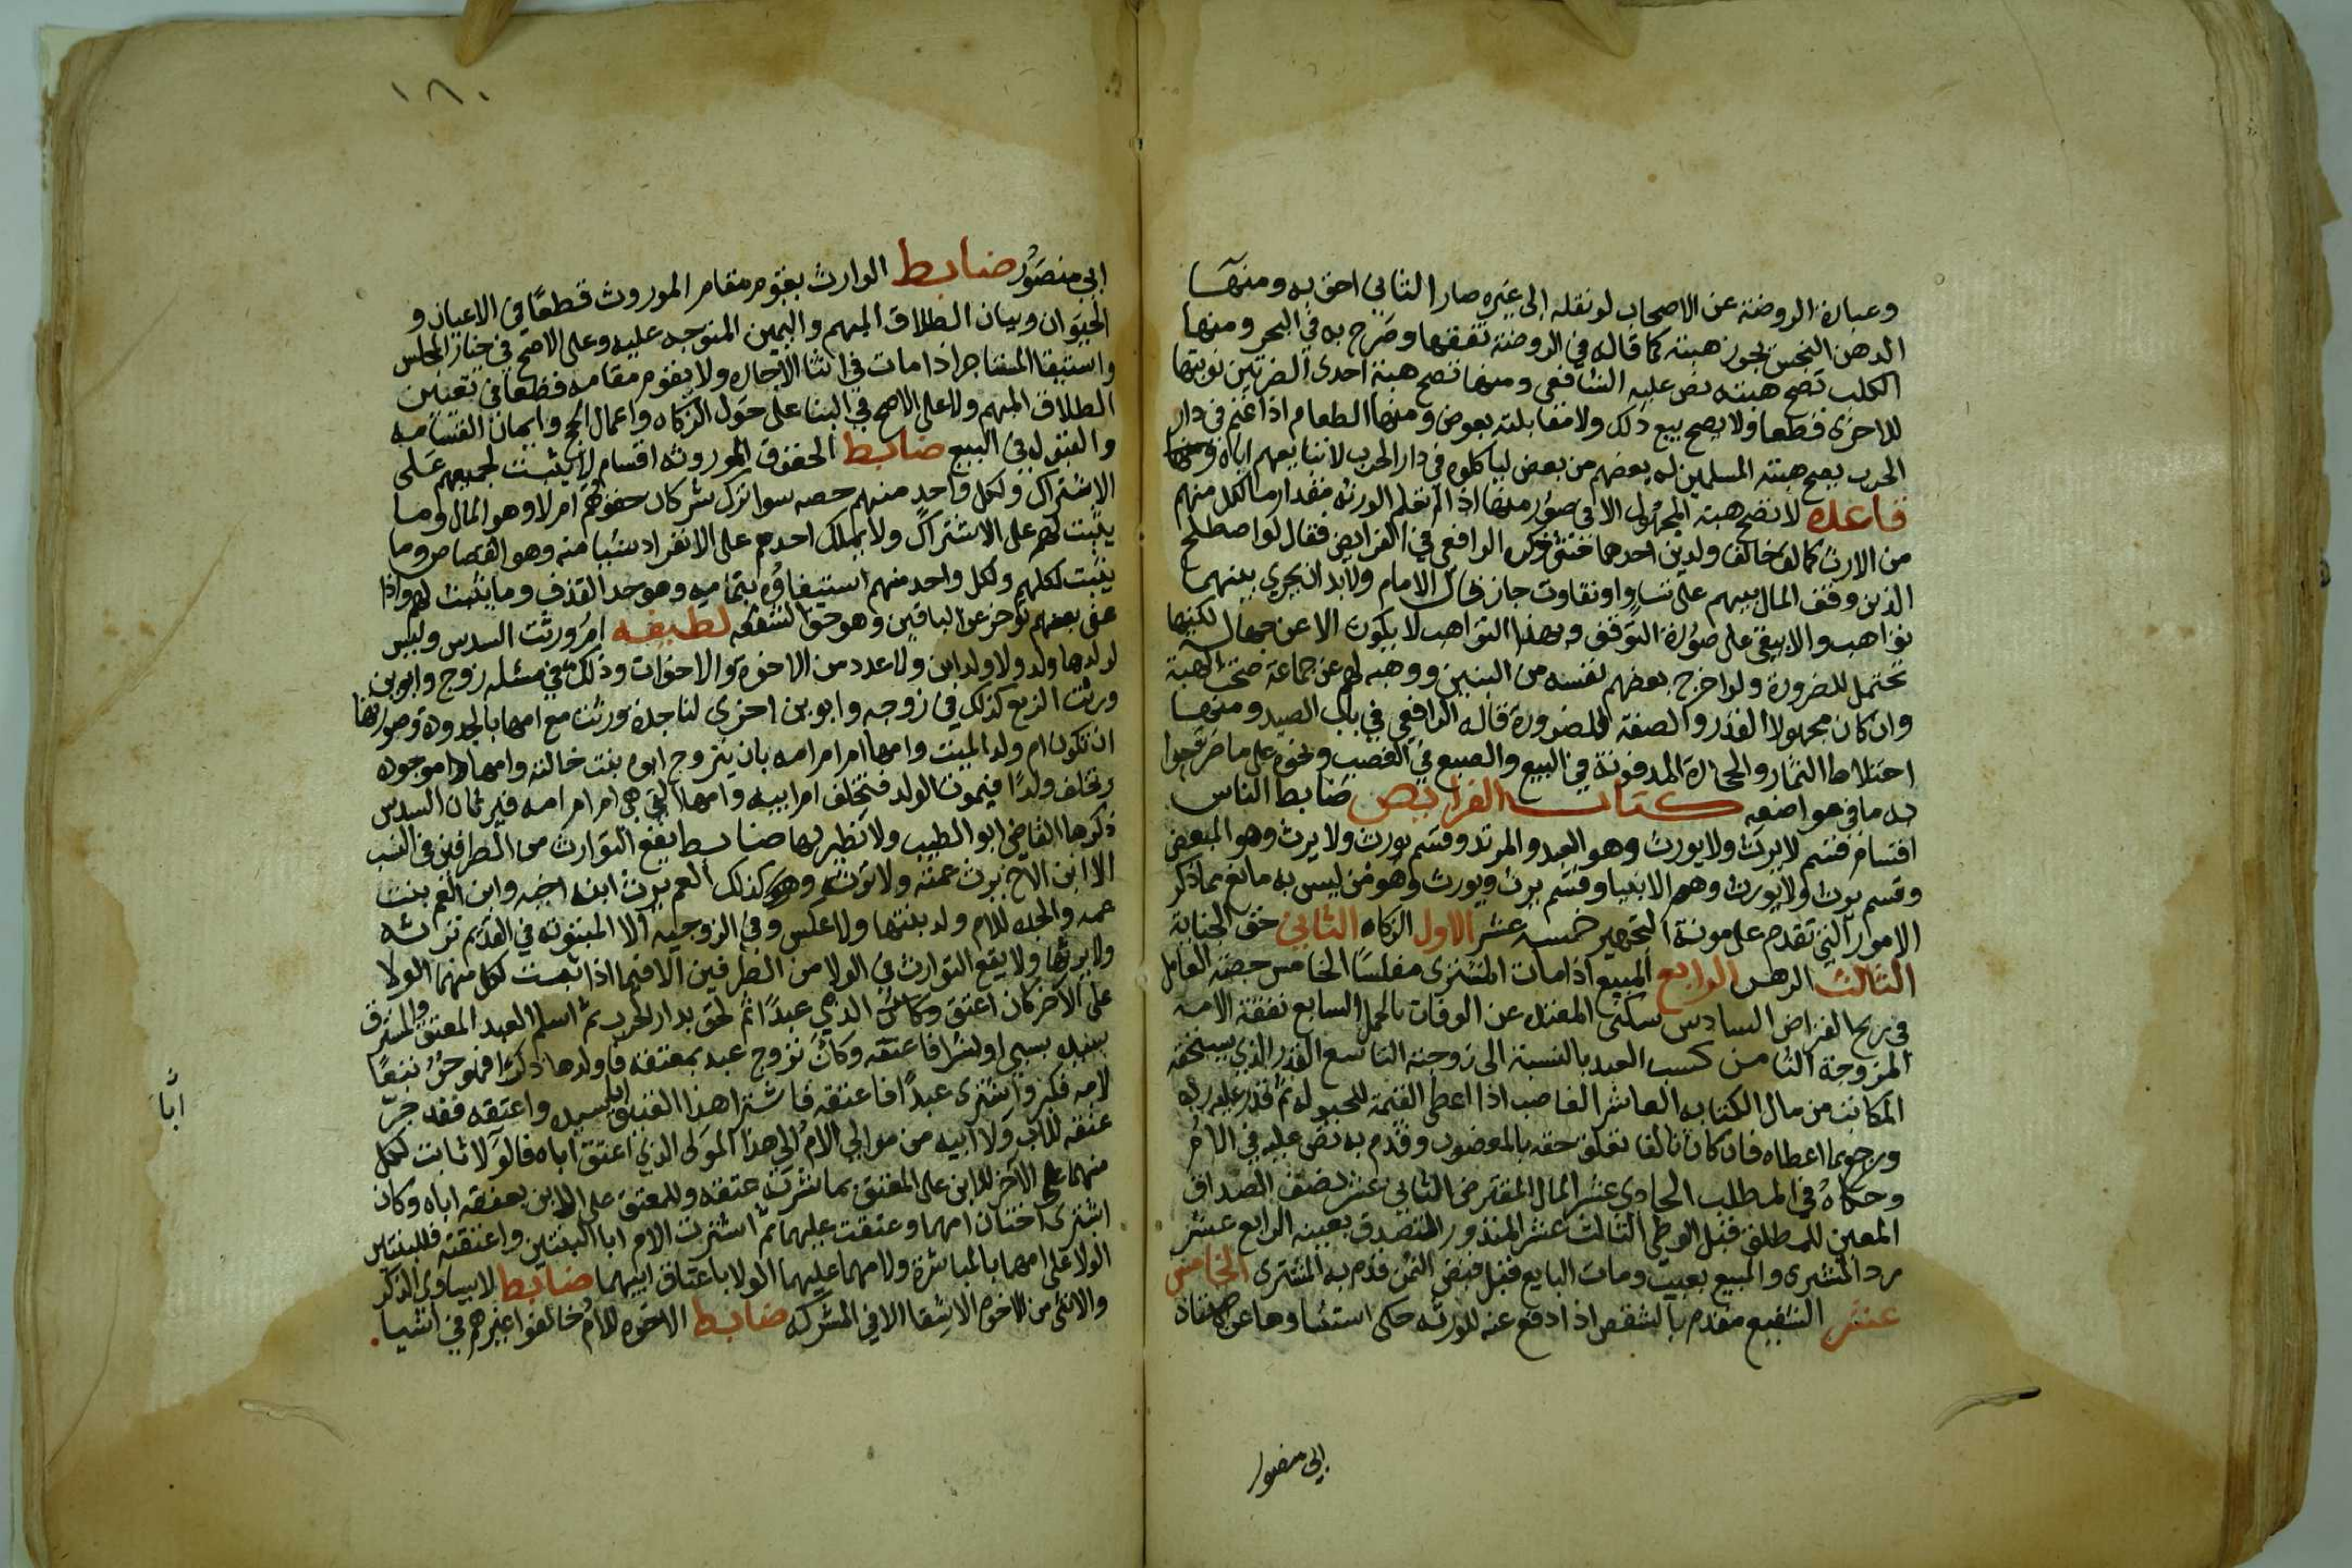 وعبارة الروضة عن الاصحاب لو نقله الى غيره صار الثاني احق به ومنها
الدهن النجس تجوز هبته كما قاله في الروضة تفقها وصرح به في البحر ومنها
الكلب تصح هبته نص عليه الشافعي ومنها تصح هبة احدى الضرتين نوبتها
للاخرى قطعا ولا يصح بيع ذلك ولا مقابلته بعوض ومنها الطعام اذا غنم في دار
الحرب يصح هبته المسلمين له بعضهم من بعض لياكلوه في دار الحرب لا تبايعهم اياه ومنها
قاعدة لا تصح هبة المجهول الا في صور منها اذا لم تعلم الورثة مقدار ما لكل منهم
من الارث كما لو خالف ولدين احدهما خنثى ذكره الرافعي في الفرايض فقال لو اصطلح
الذين وقف المال بينهم على تساو او تفاوت جاز قال الامام ولا بد ان يجري بينهما
تواهب والا لبقي على صورة التوقف وهذا التواهب لا يكون الا عن جهالة لكنها
تحتمل للضرورة ولو اخرج بعضهم نفسه من البنين ووهبه لهم عن جماعة صحت الهبة
وان كان مجهولا القدر والصفة للضرورة قاله الرافعي في باب الصيد ومنها
اختلاط الثمار والحجارة المدفونة في البيع والصبغ في الغصب ونحوه على ما صرحوا
به ما في هو اضعه كتاب الفرايض ضابط الناس
اقسام فقسم لا يرث ولا يورث وهو العبد والمرتد وقسم يورث ولا يرث وهو المبعض
وقسم يرث ولا يورث وهم الانبيا وقسم يرث ويورث وهو من ليس به مانع مما ذكر
الامور التي تقدم على مونة التجهيز خمسة عشر الاول الزكاه الثاني حق الجناية
الثالث الرهن الرابع المبيع اذا مات المشتري مفلسا الخامس حصة العامل
في ربح القراض السادس سكنى المعتدة عن الوفاة بالحمل السابع نفقة الامة
المزوجة الثامن كسب العبد بالنسبة الى زوجته التاسع القدر الذي يستحقه
المكاتب من مال الكتابه العاشر الغاصب اذا اعطى القيمة للحيلولة ثم قدر عليه ربه
ورجع بما اعطاه فان كان تالفا تعلق حقه بالمغصوب وقدم به نص عليه في الام
وحكاه في المطلب الحادي عشر المال المقترض الثاني عشر نصف الصداق
المعين للمطلق قبل الوطي الثالث عشر المنذور التصدق بعينه الرابع عشر
رد المشتري والمبيع بعيب ومات البايع قبل قبض الثمن قدم به المشتري الخامس
عشر الشفيع مقدم بالشقص اذا دفع عنه للورثه حكى استثناوها عن
ابي منصور
١٨٠
ابي منصور ضابط الوارث يقوم مقام الموروث قطعا في الاعيان و
الحيوان وبيان الطلاق المبهم واليمين المتوجه عليه وعلى الاصح في خيار المجلس
واستيفا المستاجر اذا مات في اثنا الاجارة ولا يقوم مقامه قطعا في تعيين
الطلاق المبهم ولا على الاصح في البنا على حول الزكاه واعمال الحج وايمان القسامه
والقبول في البيع ضابط الحقوق الموروثه اقسام لا يثبت لجميعهم على
الاشتراك ولكل واحد منهم حصه سوا ترك شركاه حقوقهم ام لا وهو المال وما
يثبت لهم على الاشتراك ولا يملك احدهم على الانفراد شيا منه وهو القصاص وما
يثبت لكلهم ولكل واحد منهم استيفاوه بتماميه وهو حد القذف وما يثبت لهم واذا
عفى بعضهم توفر على الباقين وهو حق الشفعه لطيفه ام ورثت السدس وليس
لولدها ولد ولا ولد ابن ولا عدد من الاخوة والاخوات وذلك في مسئلة زوج وابوين
ورثت الربع كذلك في زوجه وابوين اخرى لنا جدة ورثت مع امها بالجدودة وصورتها
ان تكون ام ولد الميت وامها ام ام امه بان يتزوج ابوه بنت خالته وامها موجوده
وتخلف ولدا فيموت الولد فتخلف ام ابيه وامها التي هي ام ام امه فيرثان السدس
ذكرها القاضي ابو الطيب ولا نظير لها ضابط يقع التوارث من الطرفين في النسب
الا ابن الاخ يرث عمته ولا ترثه وهو كذلك العم يرث ابنة اخيه وابن العم بنت
عمه والجده للام ولد بنتها ولا عكس وفي الزوجية الا المبتوته في القديم ترثه
ولا يرثها ولا يقع التوارث في الولا من الطرفين الا فيما اذا ثبت لكل منهما الولا
على الاخر كان اعتق وكان الذمي عبدا ثم لحق بدار الحرب ثم اسلم العبد المعتق واسترق
سيده بسبي او بشرا فاعتقه وكان تزوج عبد بمعتقه فاولدها ذكرا فهو حر تبعا
لامه فكبر واشترى عبدا فاعتقه فاشترا هذا العتيق ابا سيده واعتقه فقد جر
عتقه للاب ولا ابيه من موالي الام الى هذا المولى الذي اعتق اباه فالولا ثابت لكل
منهما على الاخر للابن على المعتق بما شرت عتقه وللمعتق على الابن بعتقه اباه وكان
اشترى اختان امهما وعتقت عليهما ثم اشترت الام ابا البنتين واعتقته فللبنتين
الولا على امهما بالمباشرة ولامهما عليهما الولا باعتاق ابيهما ضابط لا يساوي الذكر
والانثى من الاخوة الاشقا الا في المشركه ضابط الاخوه للام خالفوا غيرهم في اشيا
ابا